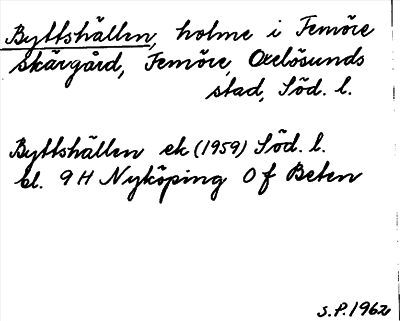 Byttshällen, holme i Femöre
skärgård, Femöre, Oxelösunds
stad, Söd. l.
Byttshällen ek (1959) Söd. l.
bl. 9 H Nyköping O f Beten
S.P. 1962